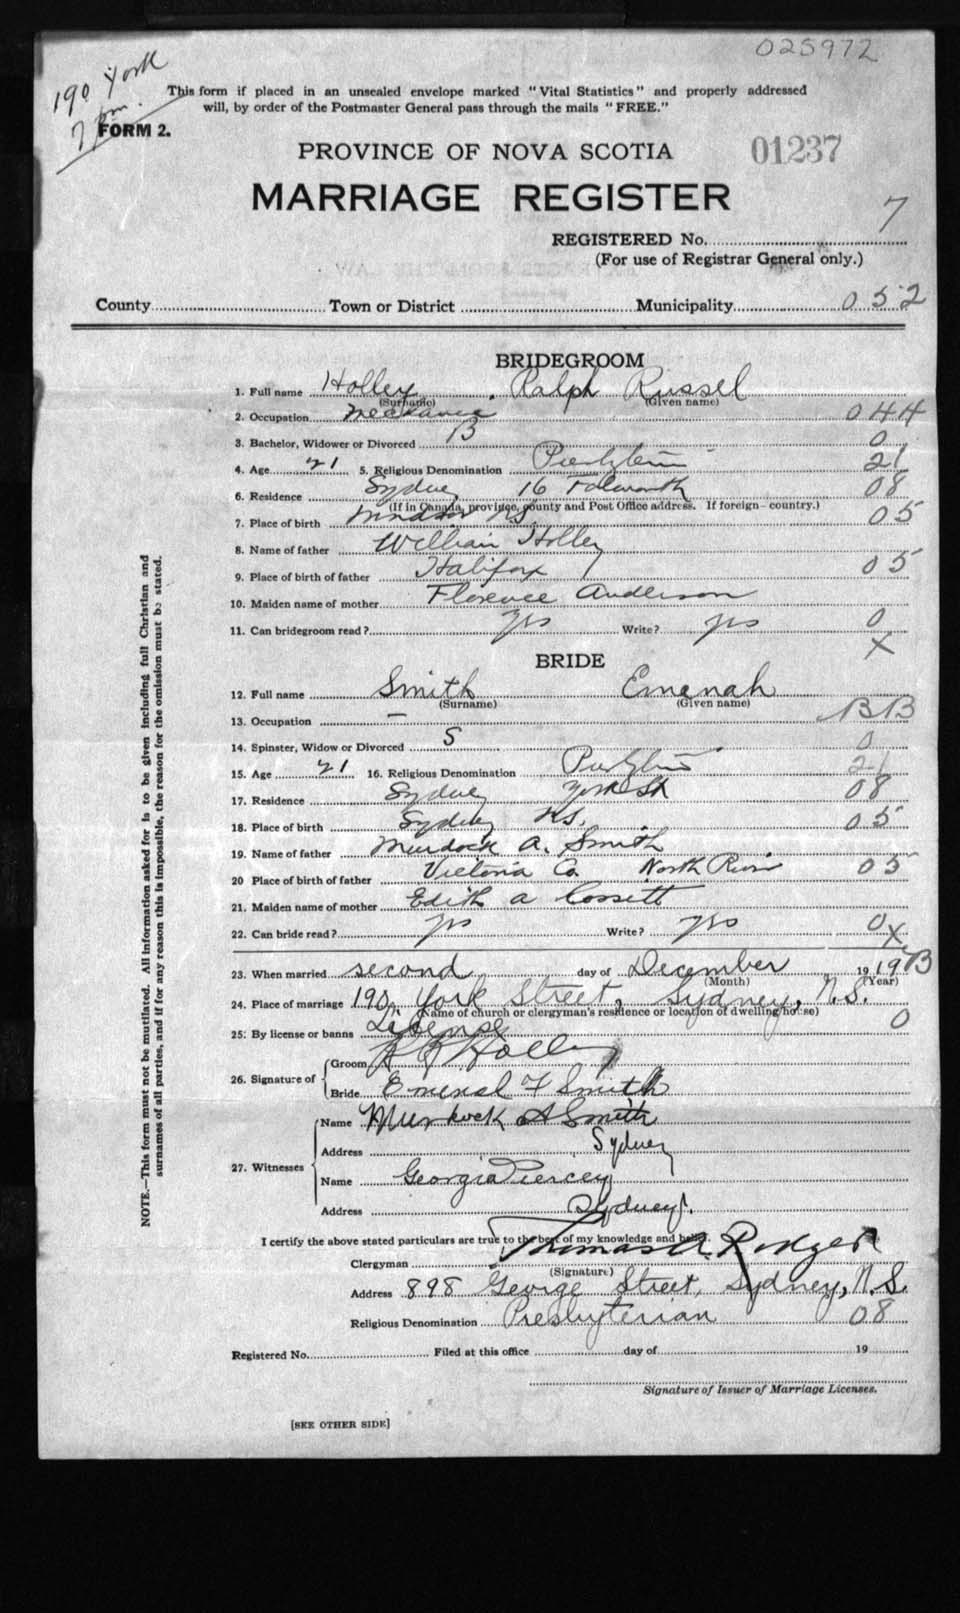 025972
190 York
7 pm.
This form if placed in an unsealed envelope marked "Vital Statistics" and properly addressed
will, by order of the Postmaster General pass through the mails "FREE."
FORM 2.
PROVINCE OF NOVA SCOTIA 01237
MARRIAGE REGISTER
REGISTERED No. 7
(For use of Registrar General only.)
County Town or District Municipality 052
BRIDEGROOM
1. Full name Holley, Ralph Russel
(Surname) (Given name)
2. Occupation Mechanic 044
3. Bachelor, Widower or Divorced B 0
4. Age 21 5. Religious Denomination 21
6. Residence Sydney 16 08
(If in Canada, province, county and Post Office address. If foreign—country.)
7. Place of birth Windsor NS 05
8. Name of father William Holley
9. Place of birth of father Halifax 05
10. Maiden name of mother Florence Anderson
11. Can bridegroom read? Yes Write? Yes 0
X
BRIDE
12. Full name Smith Emenah
(Surname) (Given name)
13. Occupation — BB
14. Spinster, Widow or Divorced S 0
15. Age 21 16. Religious Denomination 21
17. Residence Sydney York St 08
18. Place of birth Sydney NS. 05
19. Name of father Murdock A. Smith
20 Place of birth of father Victoria Co North River 05
21. Maiden name of mother Edith A Cossett
22. Can bride read? Yes Write? Yes 0
X
23. When married second day of December 19
(Month) (Year)
24. Place of marriage 190, York Street, Sydney, N.S.
(Name of church or clergyman's residence or location of dwelling house)
25. By license or banns License 0
26. Signature of Groom R R Holley
Bride F Smith
27. Witnesses Name Murdock A Smith
Address Sydney
Name Georgia Piercey
Address Sydney.
I certify the above stated particulars are true to the best of my knowledge and belief.
Clergyman Thomas A. Rodger
(Signature)
Address 898 George Street, Sydney, N.S.
Religious Denomination Presbyterian 08
Registered No. Filed at this office day of 19
Signature of Issuer of Marriage Licenses.
[SEE OTHER SIDE]
NOTE.—This form must not be mutilated. All information asked for is to be given including full Christian and
surnames of all parties, and if for any reason this is impossible, the reason for the omission must be stated.